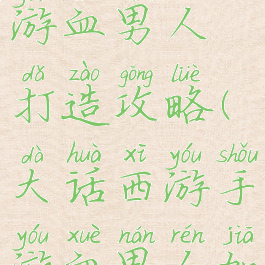 游血男人
dǎ zào gōng lüè
打造攻略(
dà huà xī yóu shǒu
大话西游手
yóu xuè nán rén jiā
游血男人加